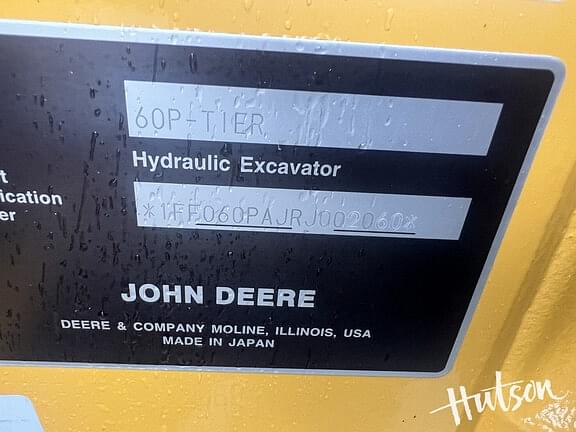 60P-TIER
Hydraulic Excavator
t
ication
er
*1FF060PAJRJ002060*
JOHN DEERE
DEERE & COMPANY MOLINE, ILLINOIS, USA
MADE IN JAPAN
Hutson